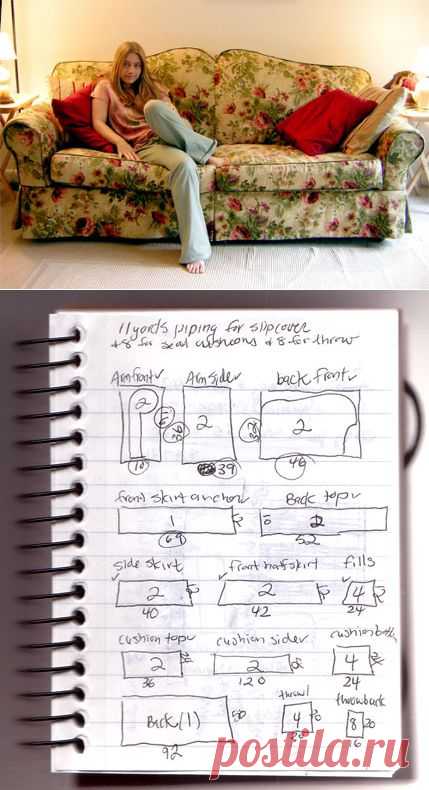 11 yards piping for slipcover
+8 for seat cushions + 8 for throw
Arm front Arm sider back front
2 2 2
10 39 46
front skirt anchor Back top
1 2
68 52
side skirt front half skirt fills
2 2 4
40 42 24
cushion top cushion sider cushion both
2 2 4
36 120 24
throwl throwback
Back (1) 50 4 20 8 20
92 20 6
postila.ru